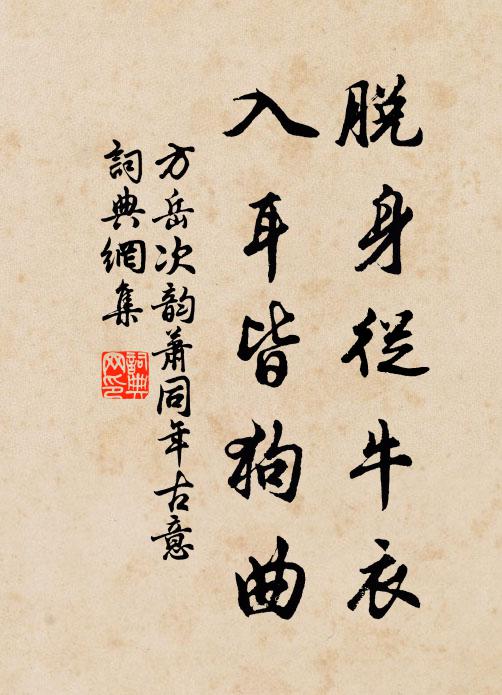 脫身從牛衣
入耳皆狗曲
方岳次韵蕭同年古意
詞典網集
詞典网印